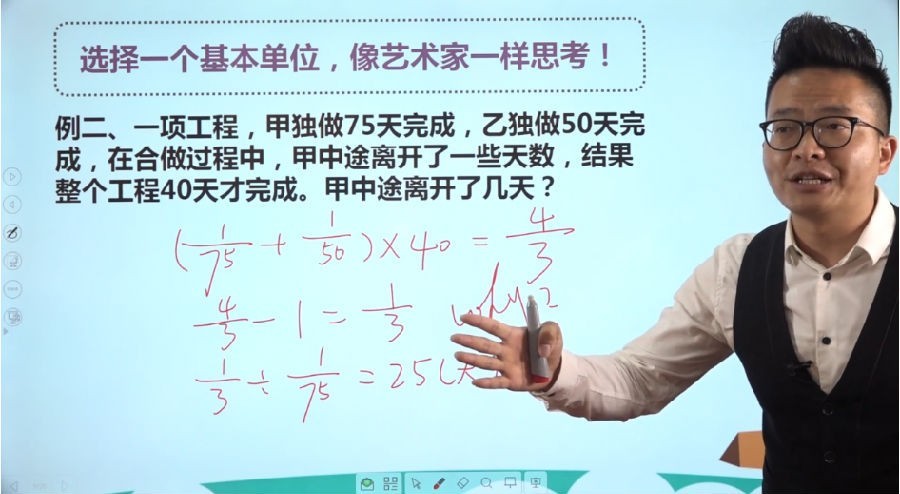 选择一个基本单位，像艺术家一样思考！
例二、一项工程，甲独做75天完成，乙独做50天完
成，在合做过程中，甲中途离开了一些天数，结果
整个工程40天才完成。甲中途离开了几天？
(1/75 + 1/50) × 40 = 4/3
4/3 - 1 = 1/3 why?
1/3 ÷ 1/75 = 25(天